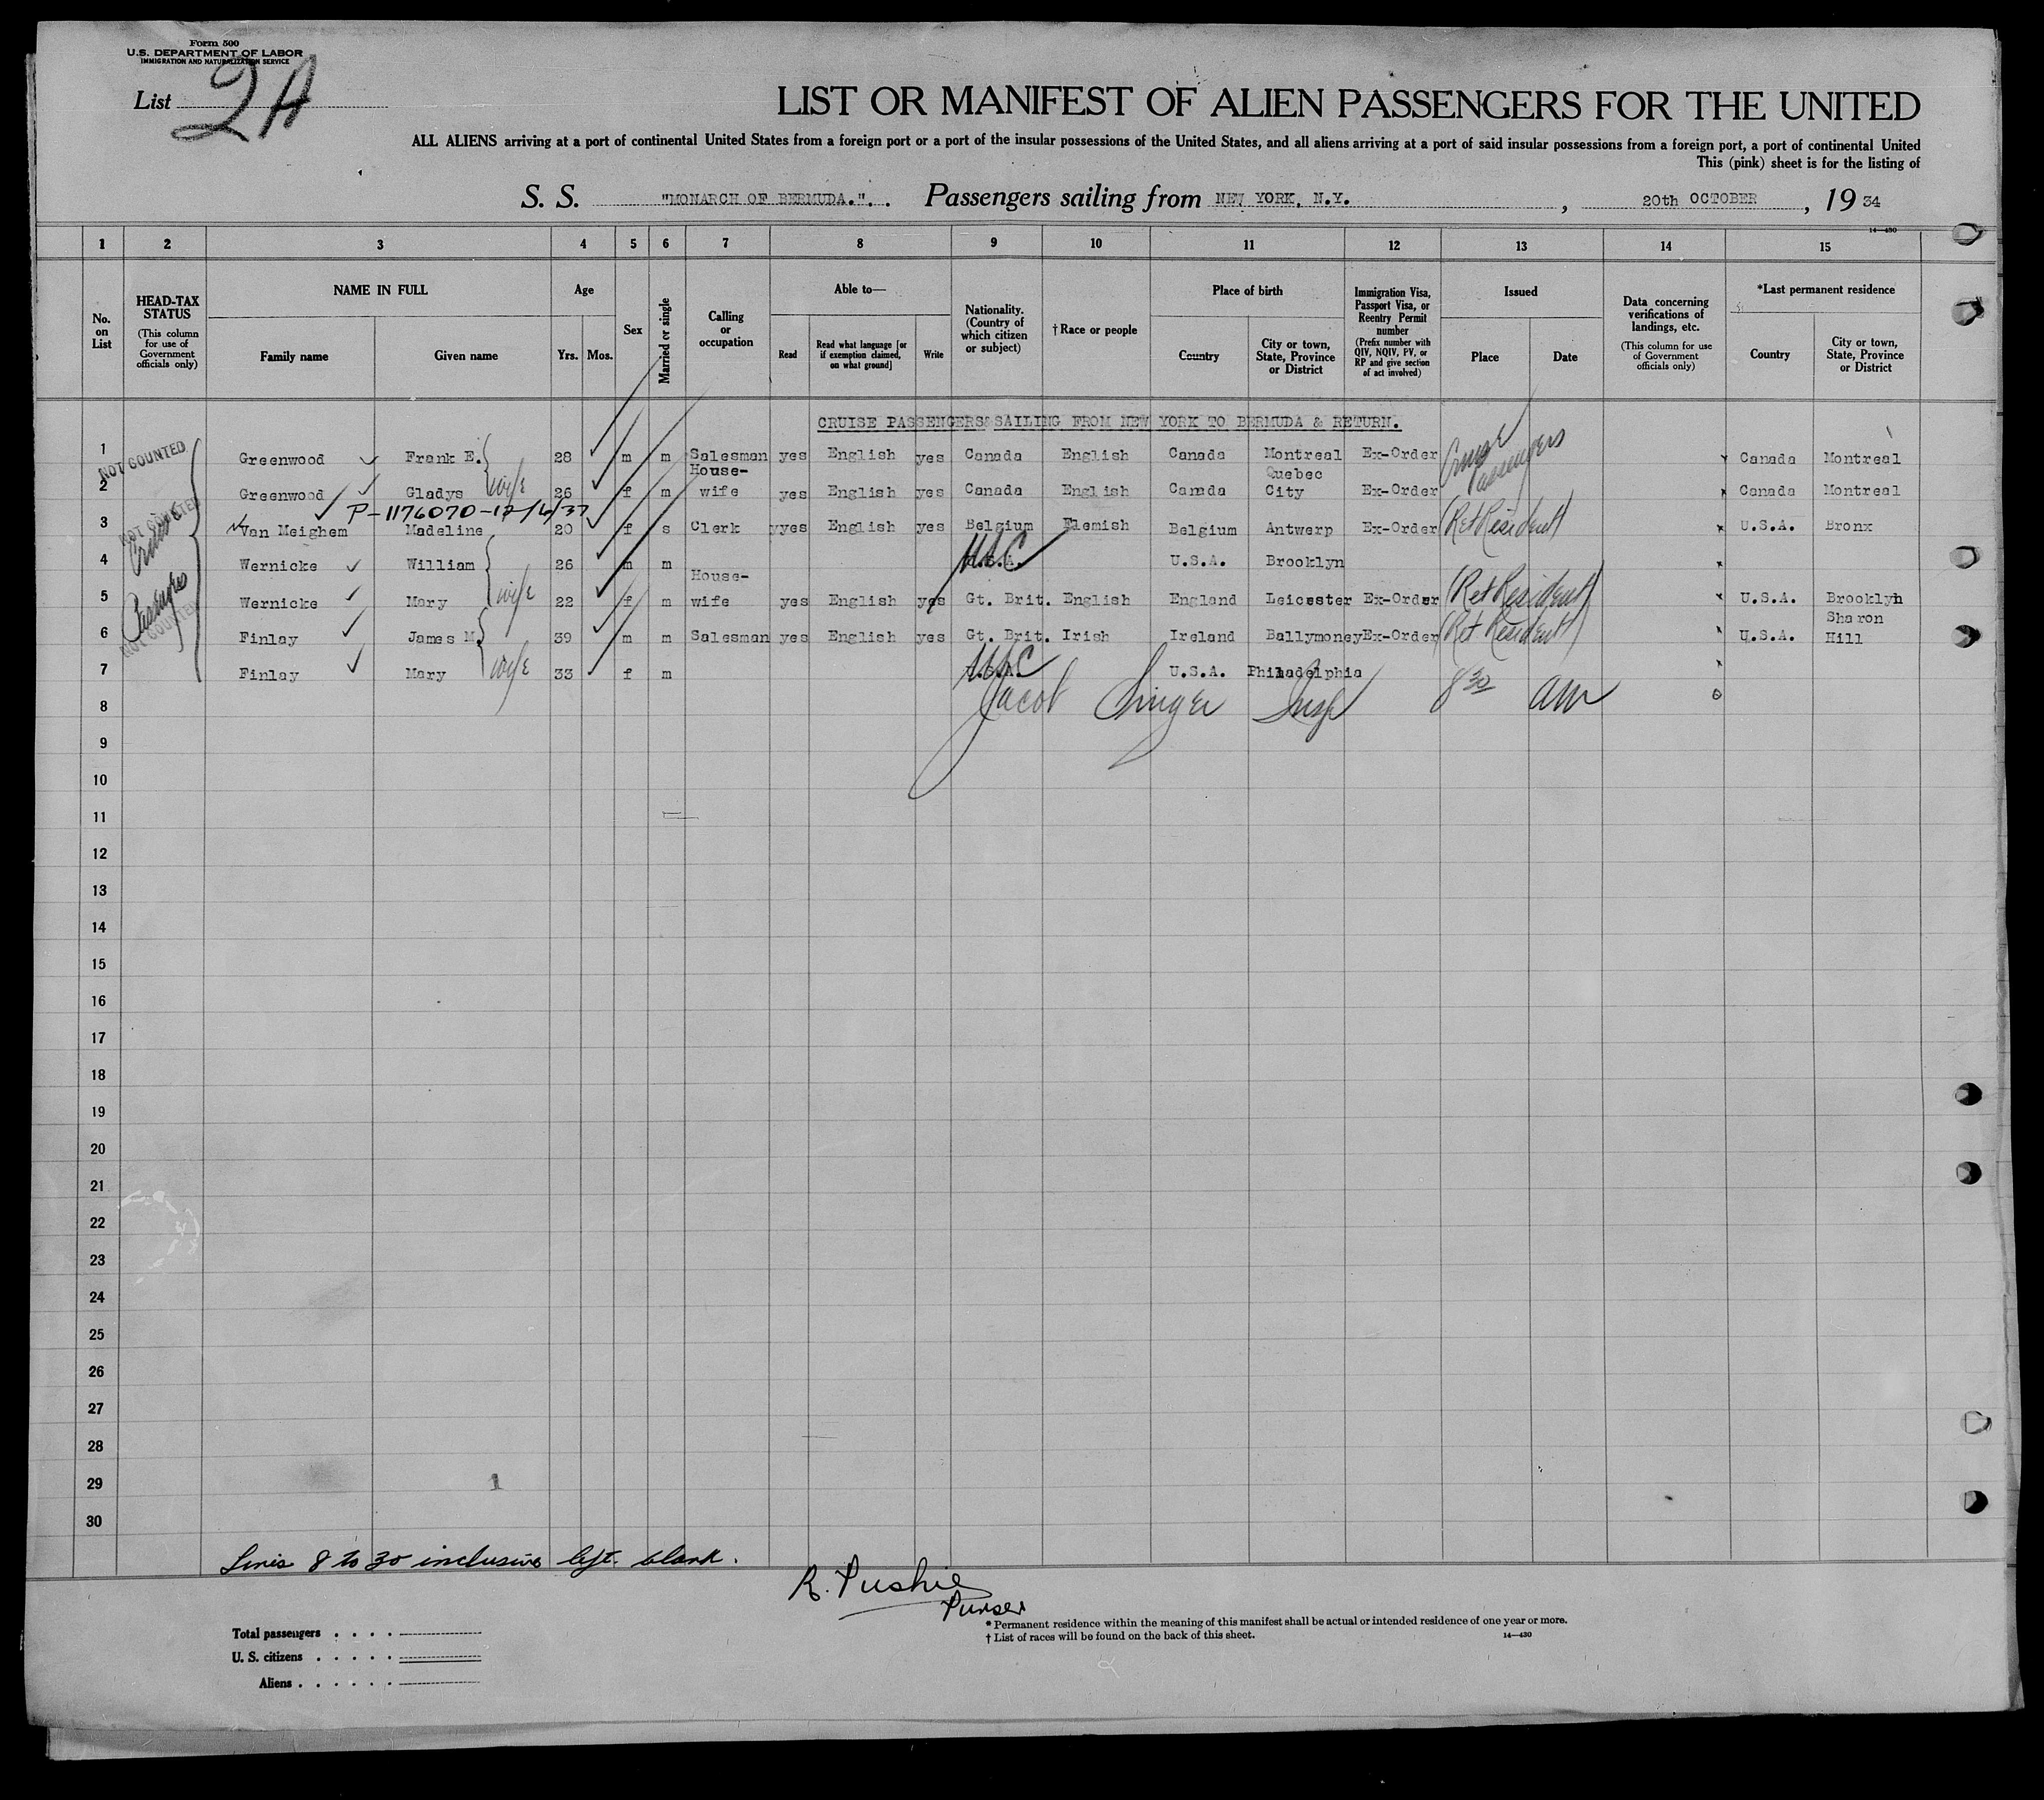 Form 500
U.S. DEPARTMENT OF LABOR
IMMIGRATION AND NATURALIZATION SERVICE
List 2A
LIST OR MANIFEST OF ALIEN PASSENGERS FOR THE UNITED
ALL ALIENS arriving at a port of continental United States from a foreign port or a port of the insular possessions of the United States, and all aliens arriving at a port of said insular possessions from a foreign port, a port of continental United
This (pink) sheet is for the listing of
S. S. "MONARCH OF BERMUDA." Passengers sailing from NEW YORK, N.Y., 20th OCTOBER, 1934
14—430
1 2 3 4 5 6 7 8 9 10 11 12 13 14 15
No. on List
HEAD-TAX STATUS (This column for use of Government officials only)
NAME IN FULL
Family name
Given name
Age
Yrs. Mos.
Sex
Married or single
Calling or occupation
Able to—
Read
Read what language [or if exemption claimed, on what ground]
Write
Nationality. (Country of which citizen or subject)
† Race or people
Place of birth
Country
City or town, State, Province or District
Immigration Visa, Passport Visa, or Reentry Permit number (Prefix number with QIV, NQIV, PV, or RP and give section of act involved)
Issued
Place
Date
Data concerning verifications of landings, etc. (This column for use of Government officials only)
*Last permanent residence
Country
City or town, State, Province or District
CRUISE PASSENGERS SAILING FROM NEW YORK TO BERMUDA & RETURN.
NOT COUNTED
1 Greenwood Frank E. 28 m m Salesman yes English yes Canada English Canada Montreal Ex-Order Cruise Passengers Canada Montreal
2 Greenwood Gladys wife 26 f m House-wife yes English yes Canada English Canada Quebec City Ex-Order Canada Montreal
P-1176070-12/6/37
NOT COUNTED
Cruise Passengers
NOT COUNTED
3 Van Meighem Madeline 20 f s Clerk yyes English yes Belgium Flemish Belgium Antwerp Ex-Order (Ret Resident) U.S.A. Bronx
4 Wernicke William 26 m m U.S.A. USC U.S.A. Brooklyn
5 Wernicke Mary wife 22 f m House-wife yes English yes Gt. Brit. English England Leicester Ex-Order (Ret Resident) U.S.A. Brooklyn
6 Finlay James M. 39 m m Salesman yes English yes Gt. Brit. Irish Ireland Ballymoney Ex-Order (Ret Resident) U.S.A. Sharon Hill
7 Finlay Mary wife 33 f m U.S.A. USC U.S.A. Philadelphia
8 Jacob Singer Insp 8 30 am
9
10
11
12
13
14
15
16
17
18
19
20
21
22
23
24
25
26
27
28
29
30
Lines 8 to 30 inclusive left blank.
R. Pushie
Purser
* Permanent residence within the meaning of this manifest shall be actual or intended residence of one year or more.
† List of races will be found on the back of this sheet.
14—430
Total passengers
U. S. citizens
Aliens